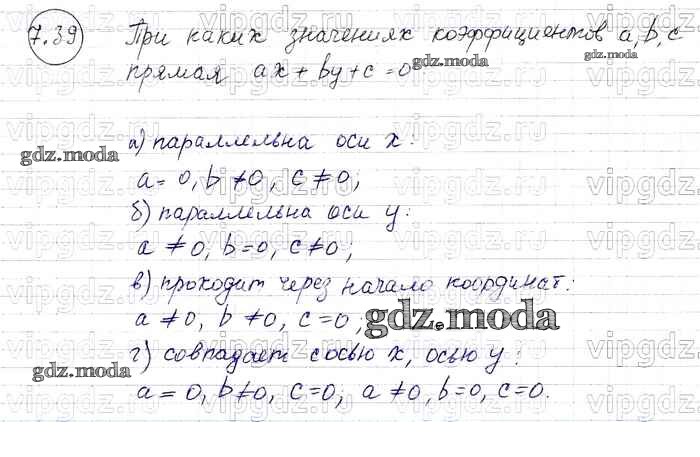 7.39 При каких значениях коэффициентов a, b, c
прямая ax + by + c = 0
gdz.moda
gdz.moda
а) параллельна оси x:
gdz.moda
a = 0, b ≠ 0, c ≠ 0;
б) параллельна оси y:
a ≠ 0, b = 0, c ≠ 0;
в) проходит через начало координат:
a ≠ 0, b ≠ 0, c = 0;
gdz.moda
г) совпадает с осью x, осью y:
gdz.moda
a = 0, b ≠ 0, c = 0; a ≠ 0, b = 0, c = 0.
vipgdz.ru